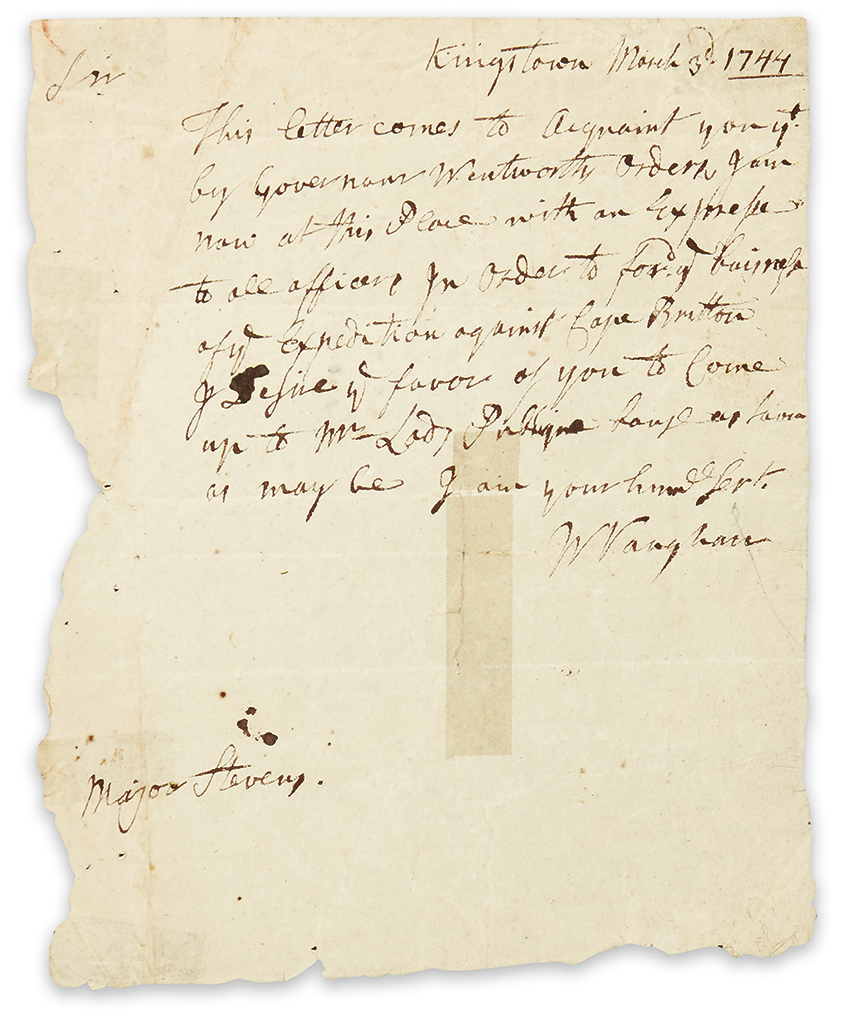 Kingstown March 3d 1744
Sir
This letter comes to Acquaint you yt
by Governour Wentworths Orders I am
now at this Place with an Express
to all officers In Order to for.d ye buisness
of ye Expedition against Cape Britton
I Desire ye favor of you to Come
up to Mr Lad's Publique house as soon
as may be I am your humle Sert.
W Vaughan
Major Stevens.